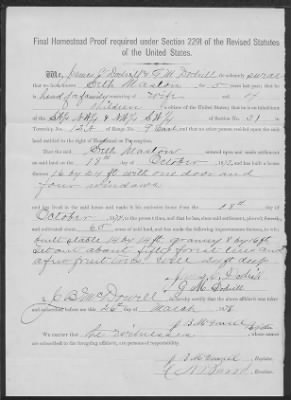 Final Homestead Proof required under Section 2291 of the Revised Statutes
of the United States.
We, James L. Dodrill & G. M. Dodrill do solemnly swear
that we have known Seth Maston for 5 years last past; that he is
head of a family consisting of wife and
children a citizen of the United States; that he is an inhabitant
of the S½ NW¼ N½ SW¼ of Section No. 21 in
Township No. 12 S of Range No. 9 East and that no other person resided upon the said
land entitled to the right of Homestead or Pre-emption.
That the said Seth Maston entered upon and made settlement
on said land on the 18th day of October, 187 and has built a house
thereon 16 by 24 ft with one door and
four windows
and has lived in the said house and made it his exclusive home from the 18th day of
October 187 to the present time, and that he has, since said settlement, plowed, fenced,
and cultivated about 65 acres of said land, and has made the following improvements thereon, to wit:
built stable 14 by 14 ft. granery 8 by 16 ft
set out about fifty forest trees and
a few fruit trees. Well deep
James L. Dodrill
G. M. Dodrill
I, C. B. McDowell do hereby certify that the above affidavit was taken
and subscribed before me this 26th day of March 1878
We certify that the witnesses whose names
are subscribed to the foregoing affidavit, are persons of respectability.
, Register.
, Receiver.